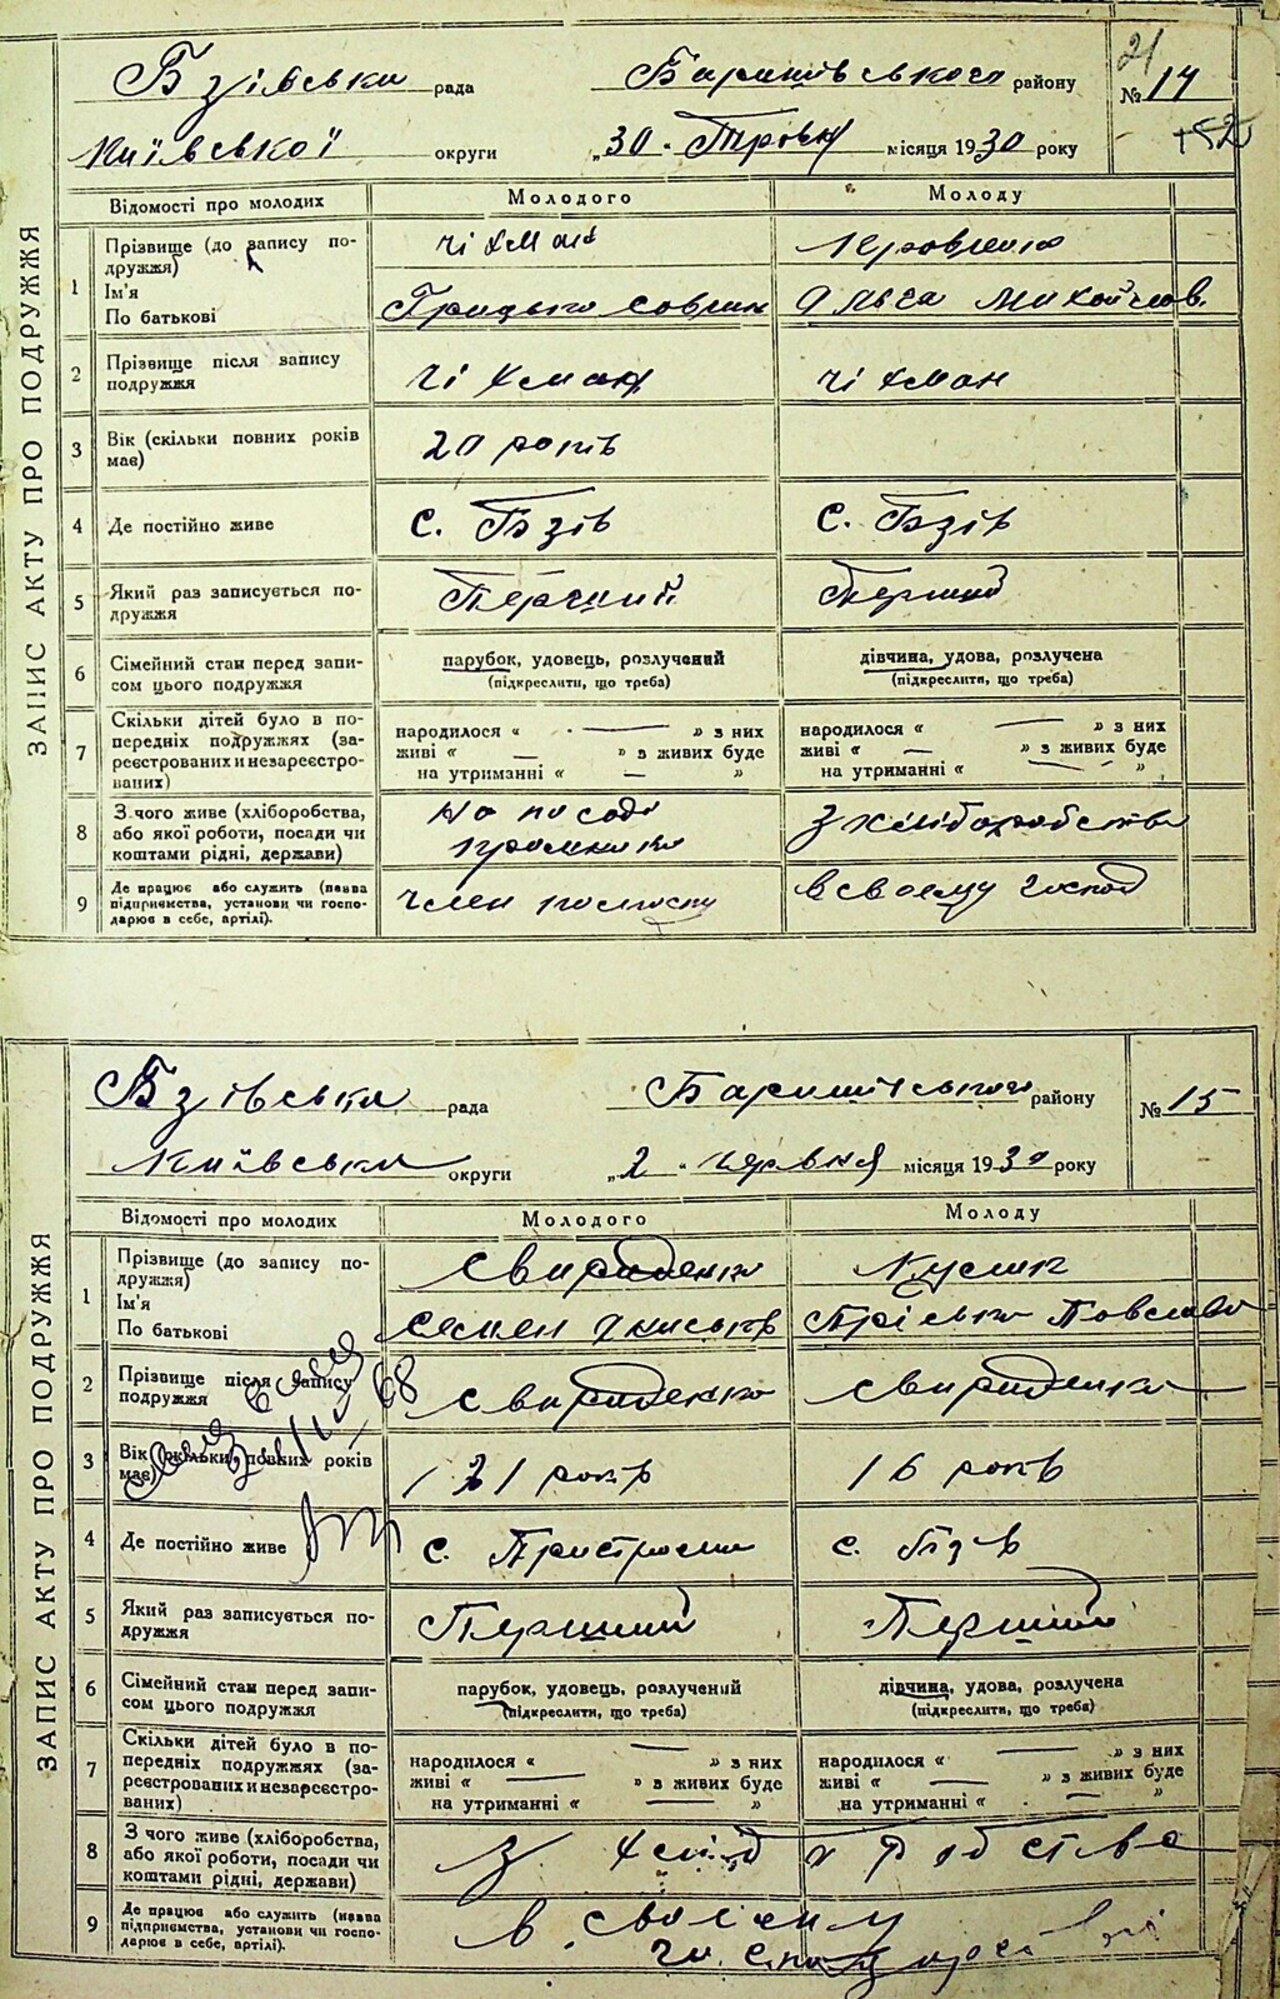 ЗАПИС АКТУ ПРО ПОДРУЖЖЯ
Бзівська рада Баришівського району № 14
21
Київської округи „30" Травня місяця 1930 року
Відомості про молодих Молодого Молоду
1 Прізвище (до запису подружжя) Чіхман
Ім'я По батькові Грицько Ольга Михайлов.
2 Прізвище після запису подружжя Чіхман Чіхман
3 Вік (скільки повних років має) 20 років
4 Де постійно живе с. Бзів с. Бзів
5 Який раз записується подружжя Перший Перший
6 Сімейний стан перед записом цього подружжя парубок, удовець, розлучений дівчина, удова, розлучена
(підкреслити, що треба) (підкреслити, що треба)
7 Скільки дітей було в попередніх подружжях (зареєстрованих и незареєстрованих)
народилося « — » з них народилося « — » з них
живі « — » з живих буде живі « — » з живих буде
на утриманні « — » на утриманні « — »
8 З чого живе (хліборобства, або якої роботи, посади чи коштами рідні, держави) На посаді з хліборобства
9 Де працює або служить (назва підприємства, установи чи господарює в себе, артілі). член в своему господ
ЗАПИС АКТУ ПРО ПОДРУЖЖЯ
Бзівська рада Баришівського району № 15
Київська округи „2" червня місяця 1930 року
Відомості про молодих Молодого Молоду
1 Прізвище (до запису подружжя) Свириденко Кулик
Ім'я По батькові Семен Пріська Павлова
2 Прізвище після запису подружжя Свириденко Свириденко
68
3 Вік (скільки повних років має) 21 років 16 років
4 Де постійно живе с. Пристроми с. Бзів
5 Який раз записується подружжя Перший Перший
6 Сімейний стан перед записом цього подружжя парубок, удовець, розлучений дівчина, удова, розлучена
(підкреслити, що треба) (підкреслити, що треба)
7 Скільки дітей було в попередніх подружжях (зареєстрованих и незареєстрованих)
народилося « — » з них народилося « — » з них
живі « — » з живих буде живі « — » з живих буде
на утриманні « — » на утриманні « — »
8 З чого живе (хліборобства, або якої роботи, посади чи коштами рідні, держави) З хліборобства
9 Де працює або служить (назва підприємства, установи чи господарює в себе, артілі). в своєму